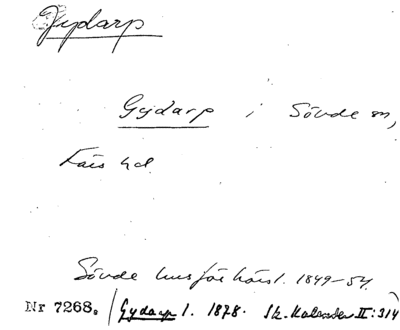 Gydarp
Gydarp i Sövde sn,
Färs hd.
Sövde husförhörsl. 1849-54.
Nr 7268. / Gydarp l. 1878. Sk. Kalender II: 314